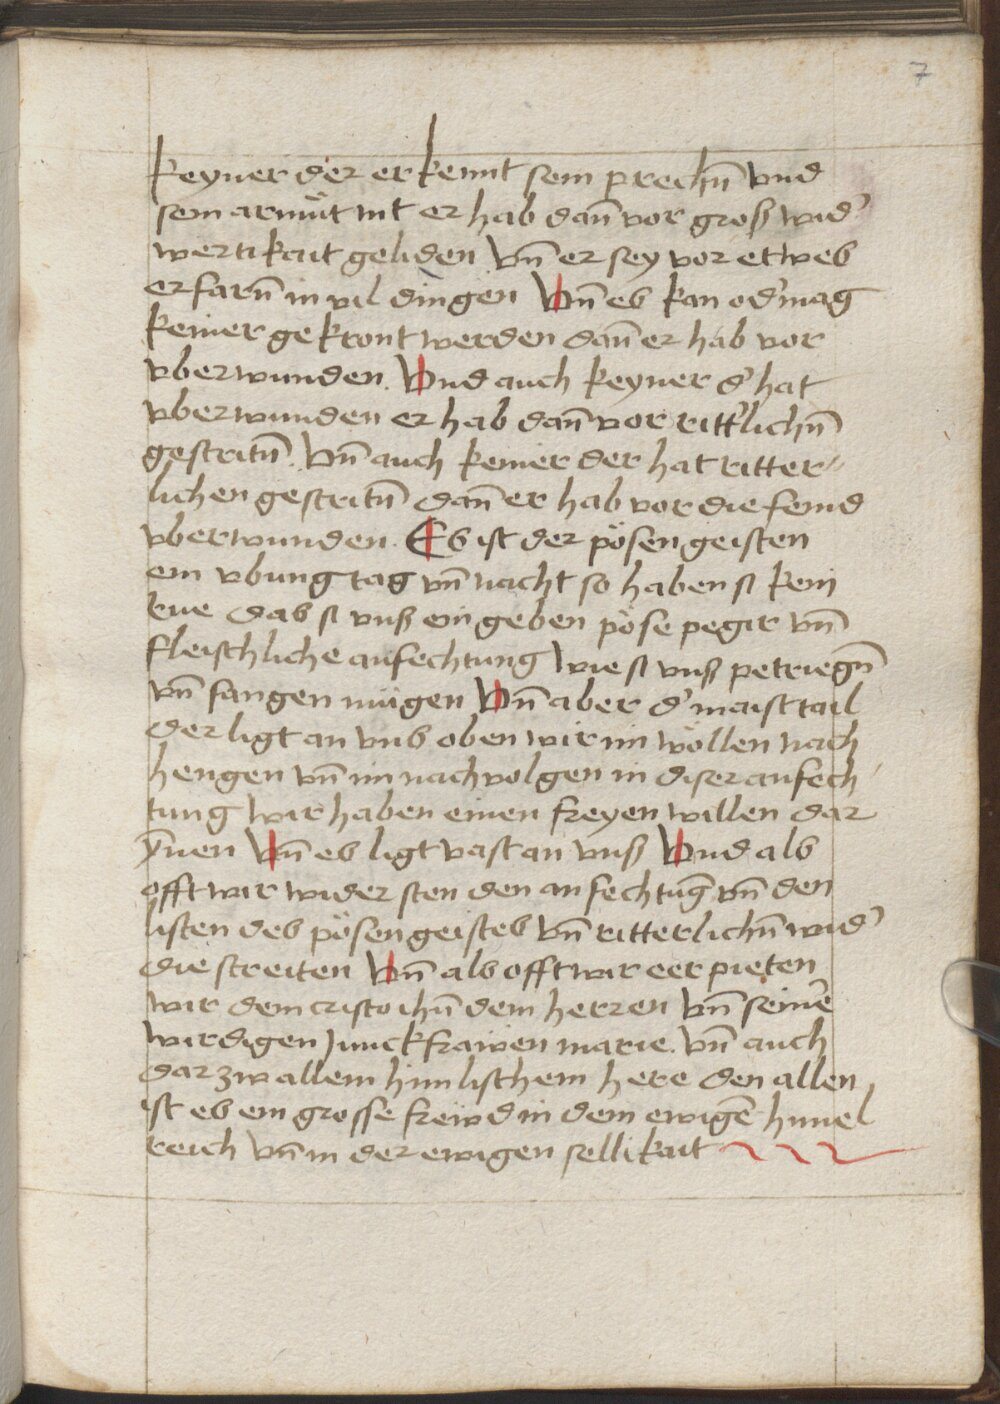 7
keyner der erkennt sein prechn̄ vnd
sein armüt nit er hab dan̄ vor groß wid'
wertikait geliden Vn̄ er sey vor etwes
erfarn̄ in vil dingen Vn̄ es kan od' mag
keiner gekront werden dan̄ er hab vor
vberwunden. Vnd auch keyner d' hat
vberwunden er hab dan̄ vor ritt'lichn̄
gestritn̄. Vn̄ auch keiner der hat ritter⸗
lichen gestritn̄ dan̄ er hab vor die feind
vberwunden. Es ist der pösen geisten
ein vbung tag vn̄ nacht so haben si kein
rue das si vnß ein geben pöse pegir vn̄
fleischliche anfechtung Wie si vnß petriegn̄
vn̄ fangen mügen Vn̄ aber d' maist tail
der ligt an vns oben wir im wöllen nach
hengen vn̄ im nachvolgen in diser anfech⸗
tung Wir haben einen freyen willen dar
ȳnen Vn̄ es ligt vast an vnß Vnd als
offt wir wider sten den anfechtūg vn̄ den
listen des pösen geistes Vn̄ ritterlichn̄ wid'
die streiten Vn̄ als offt wir eer pieten
wir dem cristo ihū dem herren Vn̄ seinē
wirdigen Junckfrawen marie. Vn̄ auch
dar zw allem himlischem here den allen
ist es ein grosse frewd in dem ewigē himel
reich Vn̄ in der ewigen sellikait